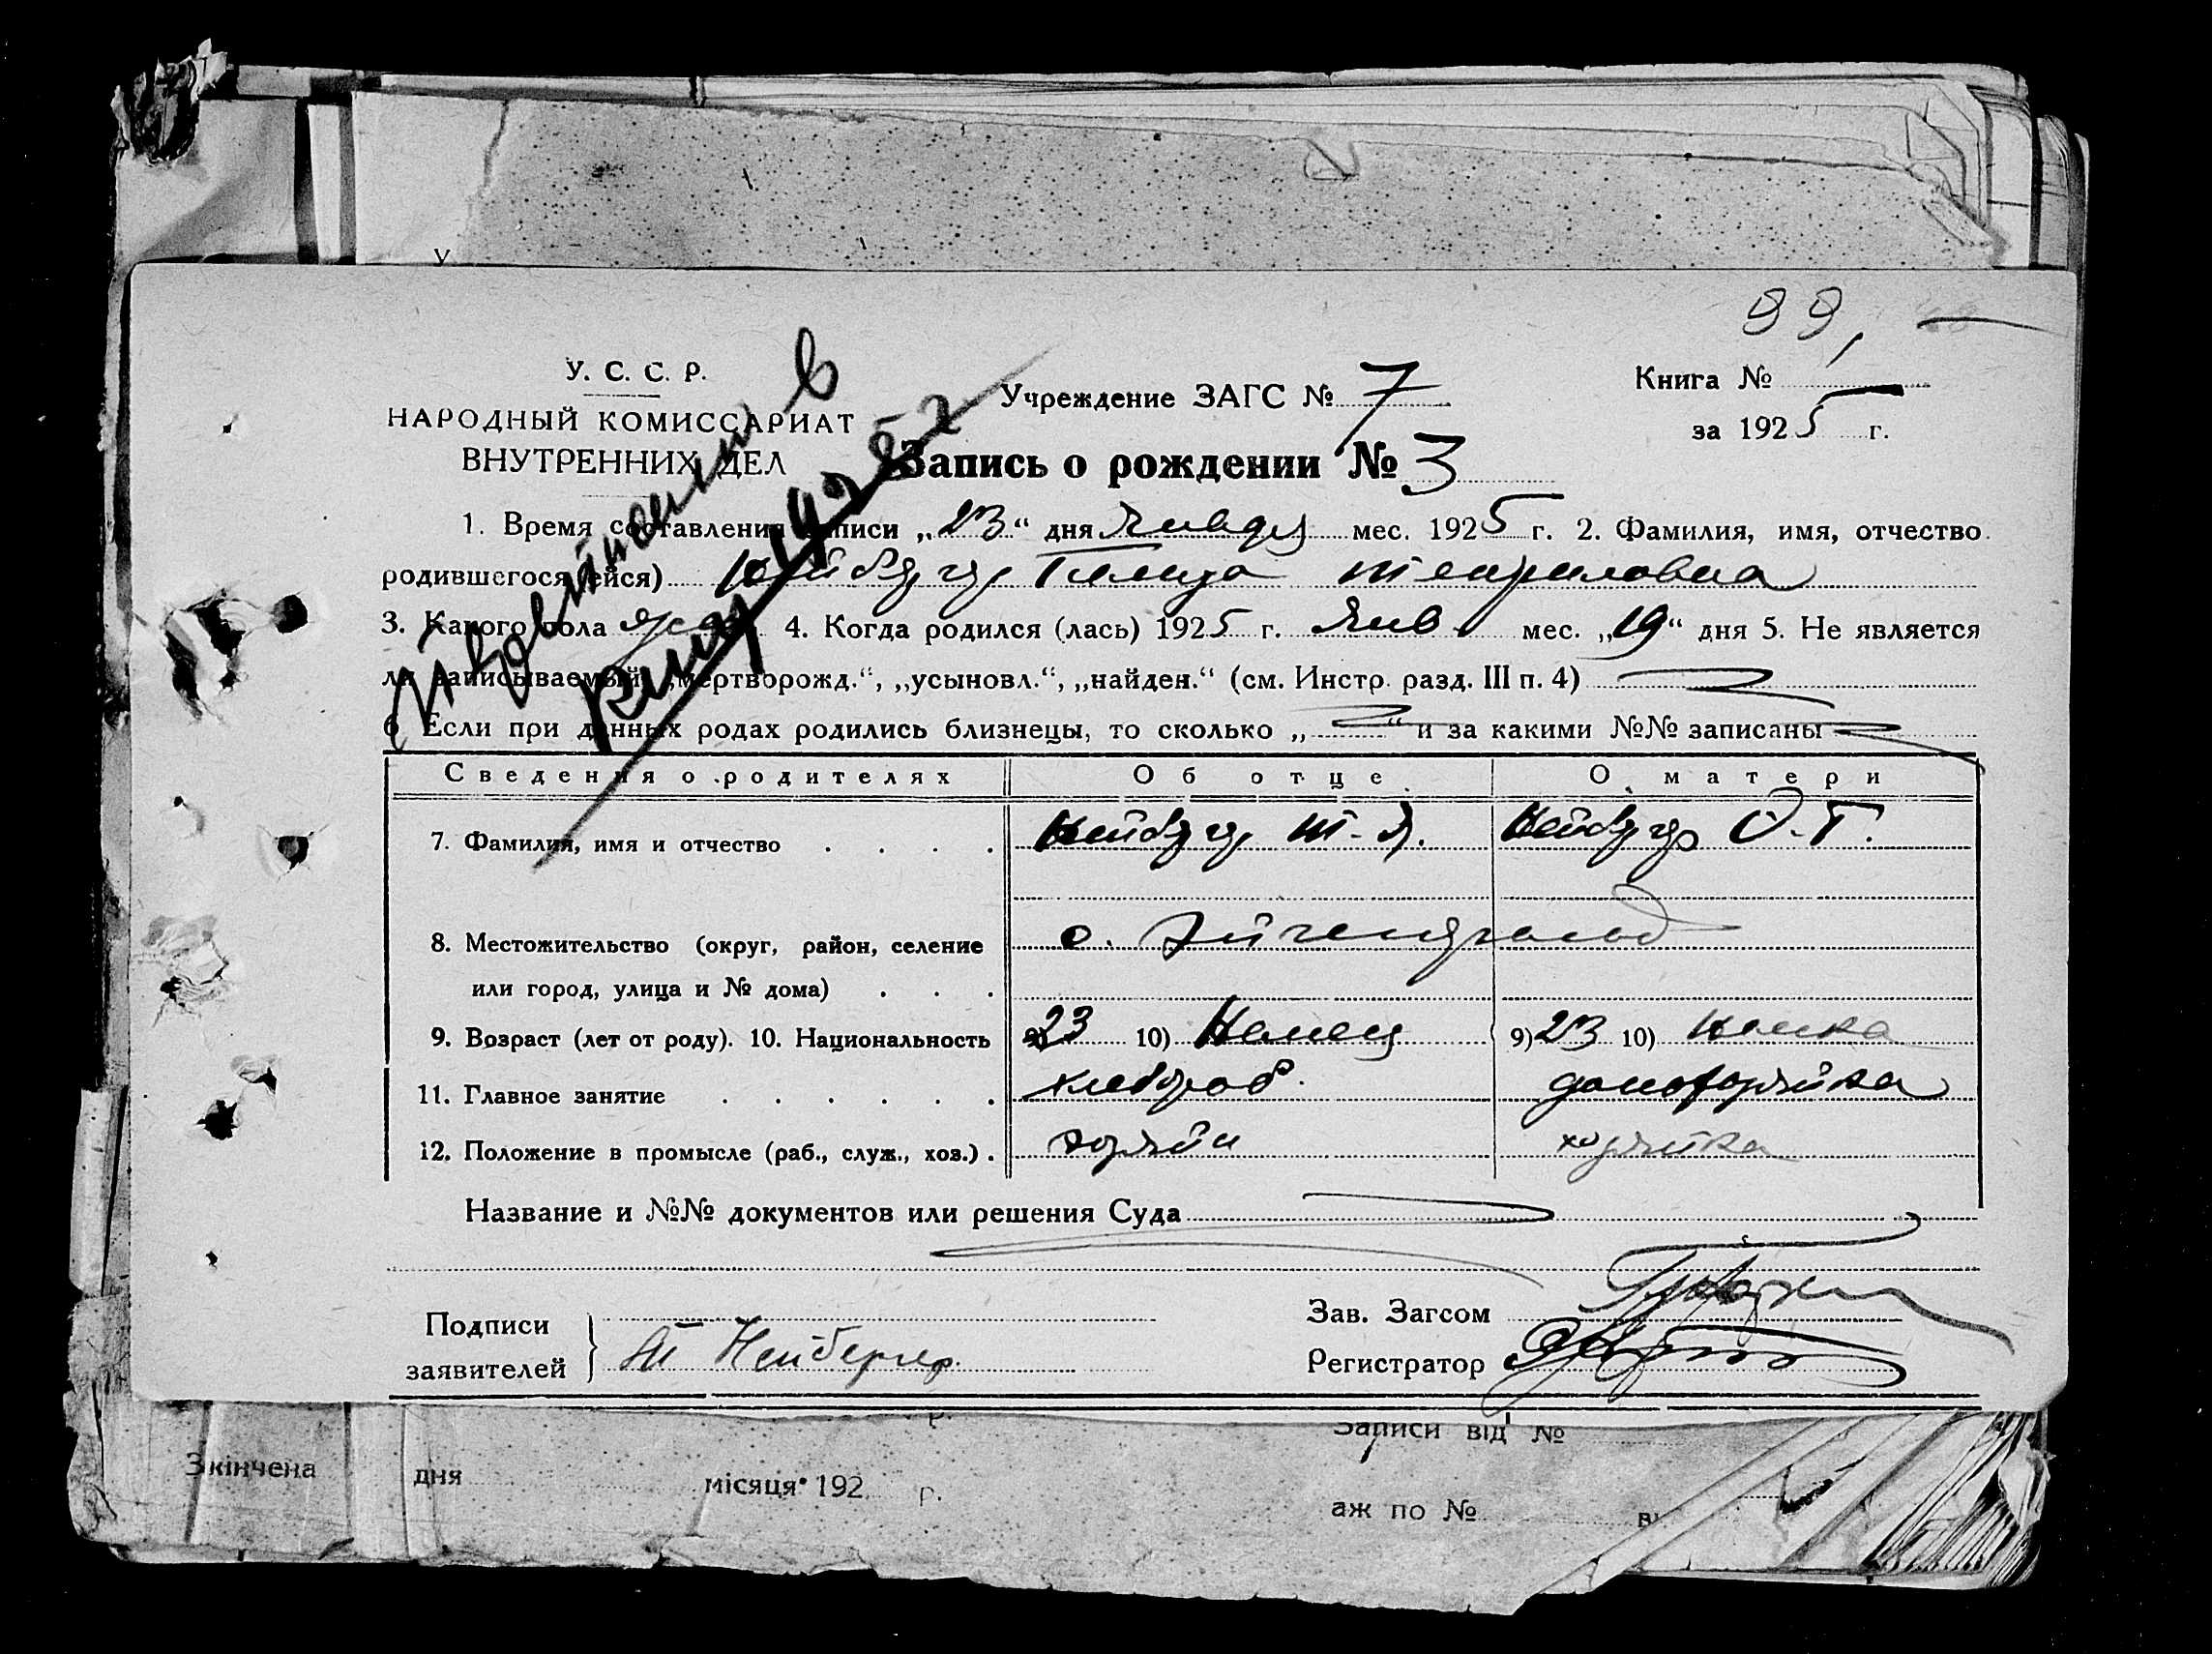 У
99,
У. С. С. Р.
НАРОДНЫЙ КОМИССАРИАТ
ВНУТРЕННИХ ДЕЛ
Учреждение ЗАГС № 7
Книга №
за 1925 г.
Запись о рождении № 3
1. Время составления записи „23“ дня Января мес. 1925 г. 2. Фамилия, имя, отчество
родившегося (ейся)
3. Какого пола жен 4. Когда родился (лась) 1925 г. Янв мес. „19“ дня 5. Не является
ли записываемый: „мертворожд.“, „усыновл.“, „найден.“ (см. Инстр. разд. III п. 4)
6 Если при данных родах родились близнецы, то сколько „ “ и за какими №№ записаны
в книзі 1925 г
Сведения о родителях Об отце О матери
7. Фамилия, имя и отчество Нейбергер О. Г.
8. Местожительство (округ, район, селение
или город, улица и № дома)
9. Возраст (лет от роду). 10. Национальность 9) 23 10) Немец 9) 23 10) Немка
11. Главное занятие хлебороб домохозяйка
12. Положение в промысле (раб., служ., хоз.) хозяин хозяйка
Название и №№ документов или решения Суда
Подписи
заявителей Нейбергер
Зав. Загсом
Регистратор
Записи від №
Зкінчена дня місяця 192 р.
аж по № ві